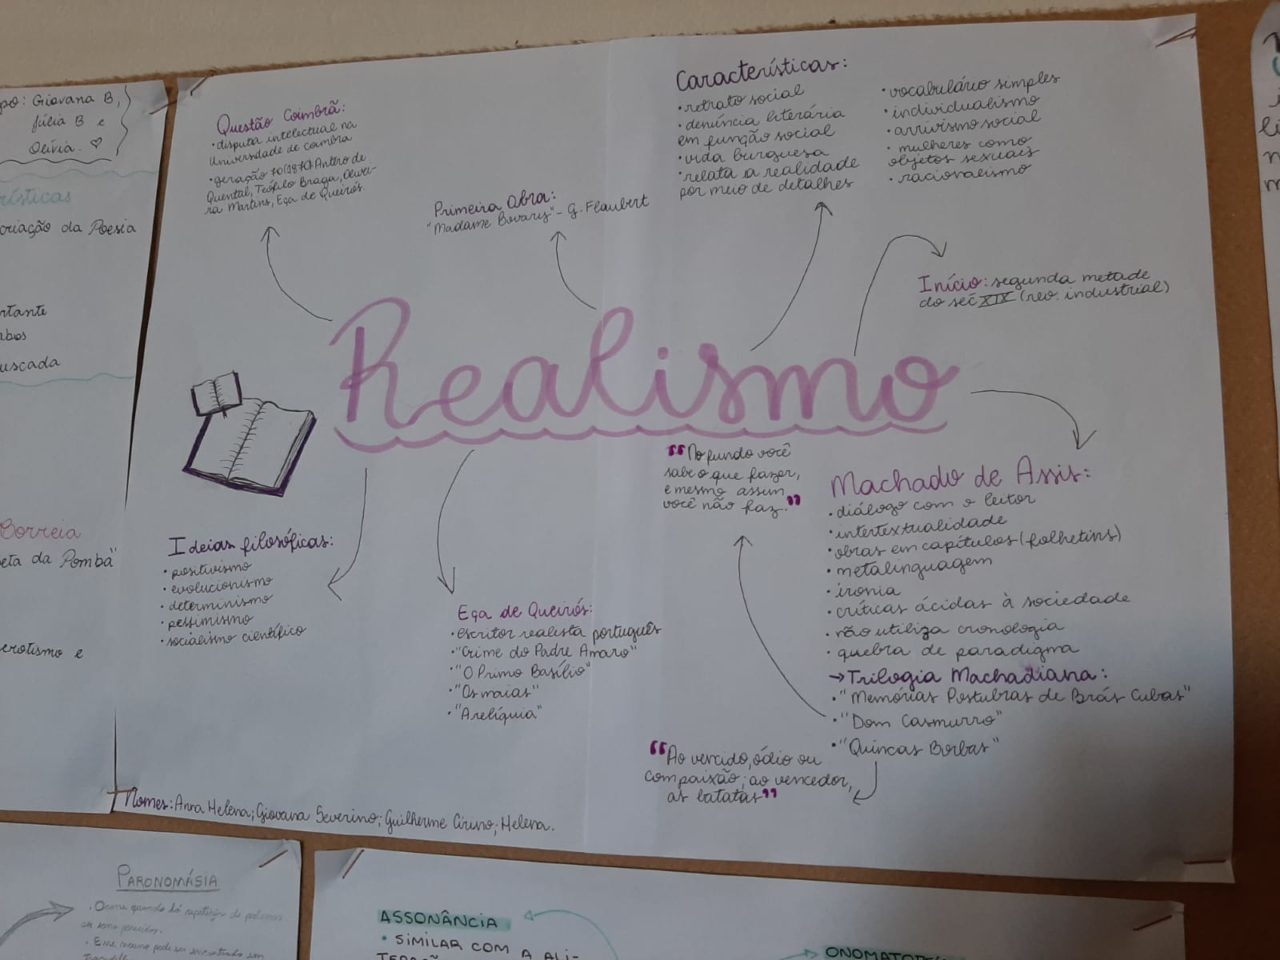 Giovana B,
Júlia B e
Olívia. ♡
rísticas
criação da Poesia
uscada
Correia
eta da Pomba"
erotismo e
Questão Coimbrã:
• disputa intelectual na
Universidade de Coimbra
• geração 70 (1970) Antero de
Quental, Teófilo Braga, Olivei-
ra Martins, Eça de Queirós.
Primeira Obra:
"Madame Bovary" - G. Flaubert
Características:
• retrato social
• denúncia literária
em função social
• vida burguesa
• relata a realidade
por meio de detalhes
• vocabulário simples
• individualismo
• arrivismo social
• mulheres como
objetos sexuais
• racionalismo
Início: segunda metade
do séc XIX (rev. industrial)
Realismo
"No fundo você
sabe o que fazer,
e mesmo assim
você não faz."
Machado de Assis:
• diálogo com o leitor
• intertextualidade
• obras em capítulos (folhetins)
• metalinguagem
• ironia
• críticas ácidas à sociedade
• não utiliza cronologia
• quebra de paradigma
→ Trilogia Machadiana:
• "Memórias Postubras de Brás Cubas"
• "Dom Casmurro"
• "Quincas Borbas"
"Ao vencido, ódio ou
compaixão; ao vencedor,
as batatas"
Ideias filosóficas:
• positivismo
• evolucionismo
• determinismo
• pessimismo
• socialismo científico
Eça de Queirós:
• escritor realista português
• "Crime do Padre Amaro"
• "O Primo Basílio"
• "Os maias"
• "A relíquia"
Nomes: Anna Helena; Giovana Severino; Guilherme Ciruno; Helena.
PARONOMÁSIA
• Ocorre quando há repetição de palavras
ASSONÂNCIA
• SIMILAR COM A ALI-